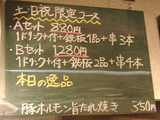 土日祝限定コース
Aセット 880円
1ドリンク+付+鉄板1品+串3本
・Bセット 1280円
1ドリンク+付+鉄板2品+串4本
本日の逸品
豚ホルモン旨だれ焼き 550円